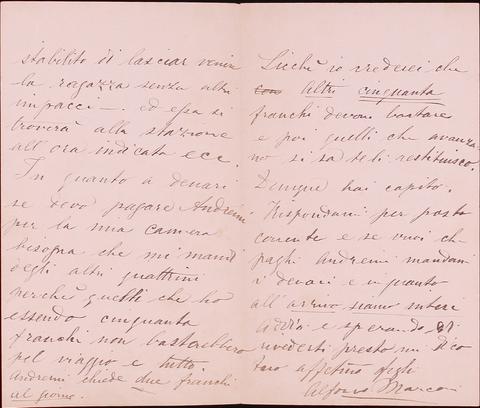 stabilito di lasciar venire
la ragazza senza altri
impacci — ed essa si
troverà alla stazione
all'ora indicata ecc.
In quanto a denari
se devo pagare Andreini
per la mia camera
bisogna che mi mandi
degli altri quattrini
perchè quelli che ho
essendo cinquanta
franchi non basterebbero
pel viaggio e tutto.
Andreini chiede due franchi
al giorno.
Sicchè io crederei che
altri cinquanta
franchi devono bastare
e poi quelli che avanza-
no si sa te li restituisco.
Dunque hai capito.
Rispondimi per posta
corrente e se vuoi che
paghi Andreini mandami
i denari e in quanto
all'arrivo siamo intesi
Addio e sperando di
rivederti presto mi dico
tuo affetmo figlio
Alfonso Marconi